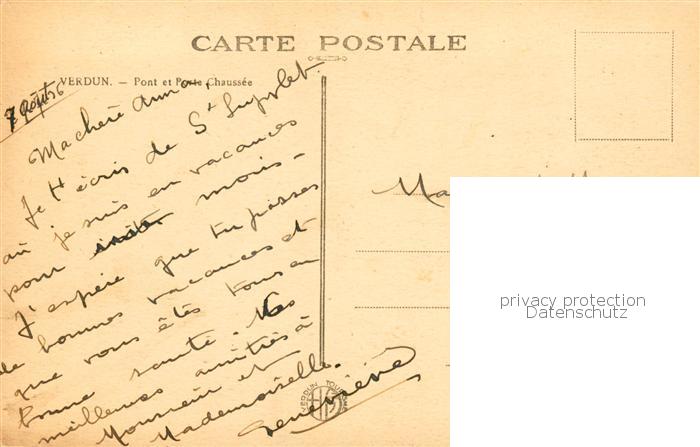 CARTE POSTALE
VERDUN. — Pont et Porte Chaussée
7 Août
Ma chère Anna
Je t'écris de St
où je suis en vacances
pour mois -
J'espère que tu passes
de bonnes vacances et
que vous êtes tous en
bonne santé. Mes
meilleures amitiés à
Monsieur et
Mademoiselle.
Geneviève
Ma
privacy protection
Datenschutz
VERDUN TOURISME